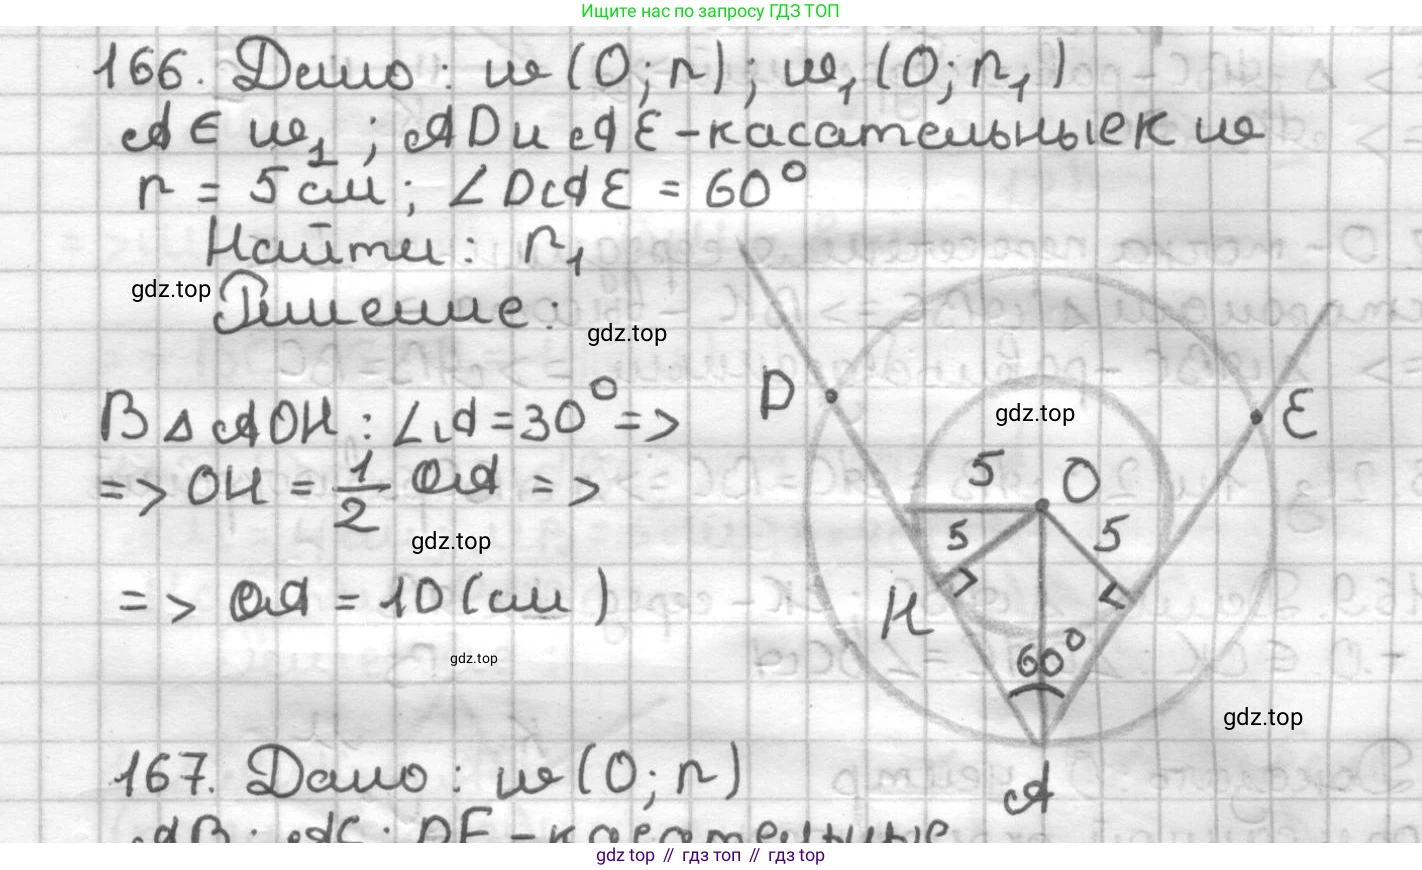 Ищите нас по запросу ГДЗ ТОП
166. Дано: w (O; r); w₁ (O; r₁)
A ∈ w₁; AD и AE - касательные к w
r = 5 см; ∠DAE = 60°
Найти: r₁
gdz.top
Решение:
gdz.top
В △ AOH: ∠A = 30° =>
=> OH = 1/2 OA =>
gdz.top
=> OA = 10 (см)
gdz.top
D
E
gdz.top
5
O
5
5
H
60°
gdz.top
A
167. Дано: w (O; r)
AB; AC; DE - касательные
gdz.top // гдз топ // gdz.top